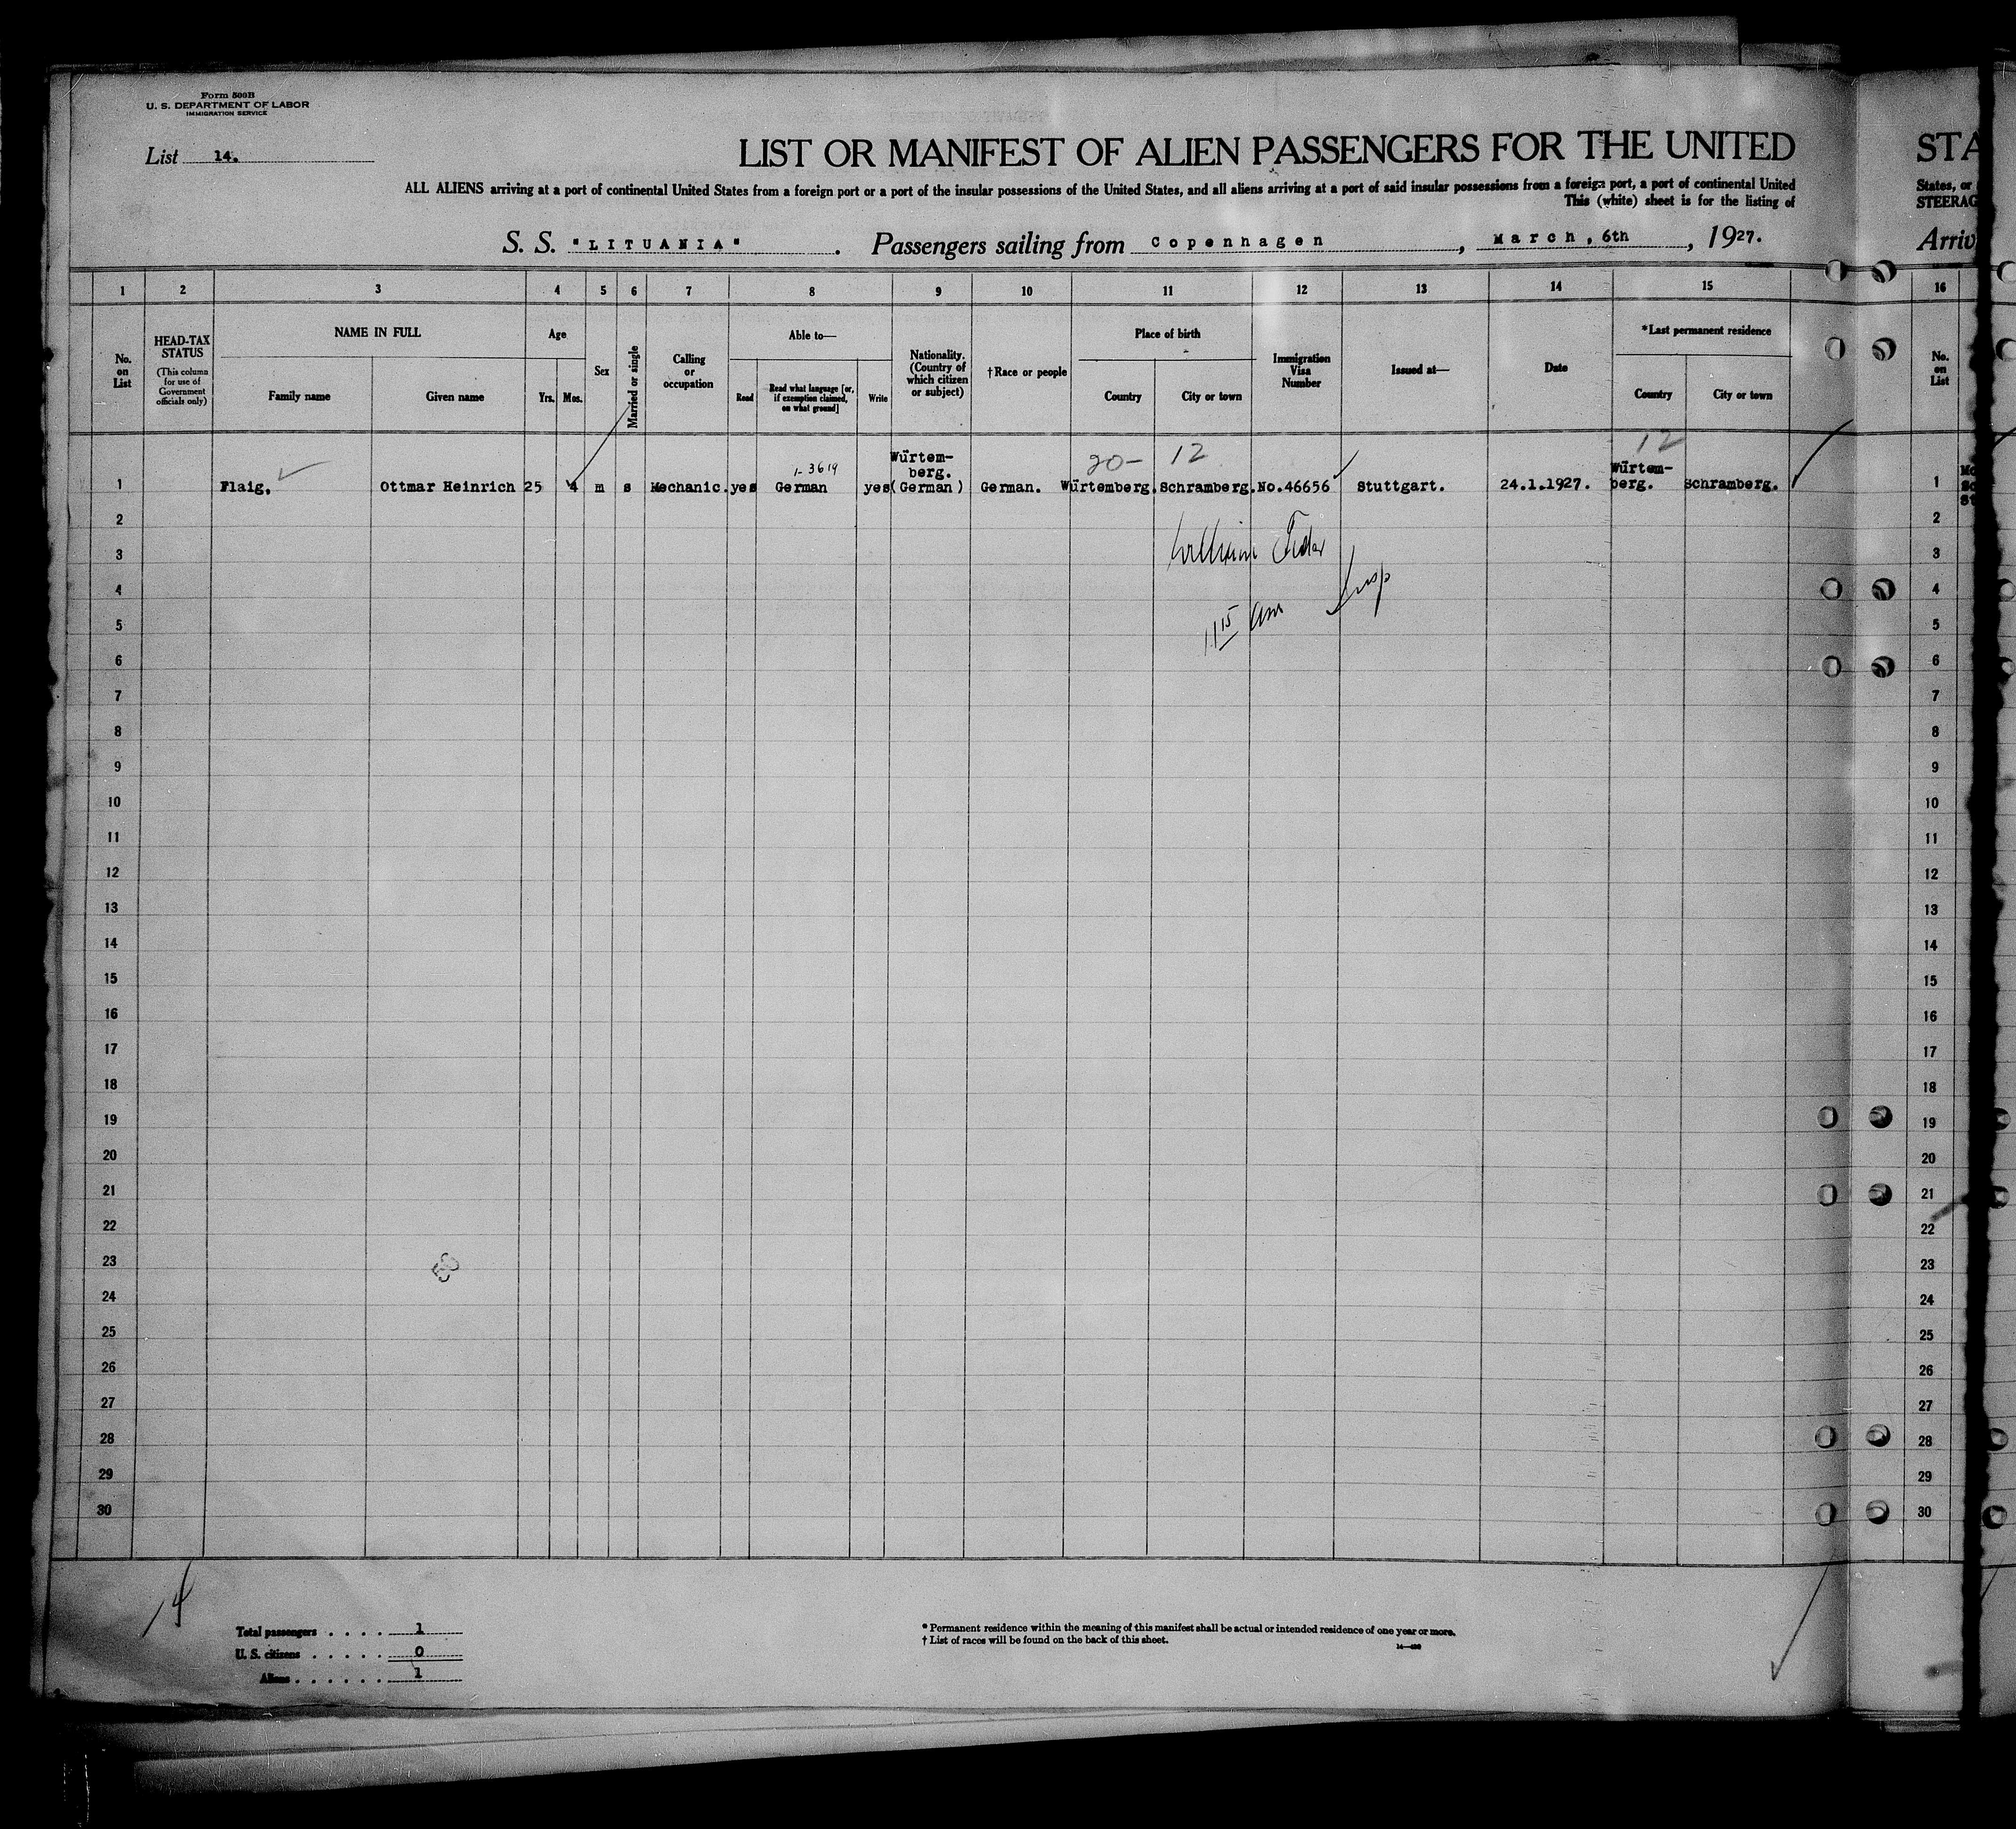 Form 500B
U. S. DEPARTMENT OF LABOR
IMMIGRATION SERVICE
List 14.
LIST OR MANIFEST OF ALIEN PASSENGERS FOR THE UNITED
STA
ALL ALIENS arriving at a port of continental United States from a foreign port or a port of the insular possessions of the United States, and all aliens arriving at a port of said insular possessions from a foreign port, a port of continental United
States, or
This (white) sheet is for the listing of
STEERAG
S. S. "LITUANIA". Passengers sailing from Copenhagen, March, 6th, 1927.
Arriv
1 2 3 4 5 6 7 8 9 10 11 12 13 14 15 16
No. on List
HEAD-TAX STATUS
(This column for use of Government officials only)
NAME IN FULL
Family name
Given name
Age
Yrs.
Mos.
Sex
Married or single
Calling or occupation
Able to—
Read
Read what language [or, if exemption claimed, on what ground]
Write
Nationality. (Country of which citizen or subject)
†Race or people
Place of birth
Country
City or town
Immigration Visa Number
Issued at—
Date
*Last permanent residence
Country
City or town
No. on List
20- 12 12
1- 3619
1 Flaig, Ottmar Heinrich 25 4 m s Mechanic. yes German yes Würtem-berg. (German) German. Würtemberg. Schramberg. No.46656 Stuttgart. 24.1.1927. Würtem-berg. Schramberg. 1
2 2
3 3
4 Insp 4
5 11 15 am 5
6 6
7 7
8 8
9 9
10 10
11 11
12 12
13 13
14 14
15 15
16 16
17 17
18 18
19 19
20 20
21 21
22 22
23 23
24 24
25 25
26 26
27 27
28 28
29 29
30 30
14
Total passengers . . . . 1
U. S. citizens . . . . . 0
Aliens . . . . . . 1
* Permanent residence within the meaning of this manifest shall be actual or intended residence of one year or more.
† List of races will be found on the back of this sheet.